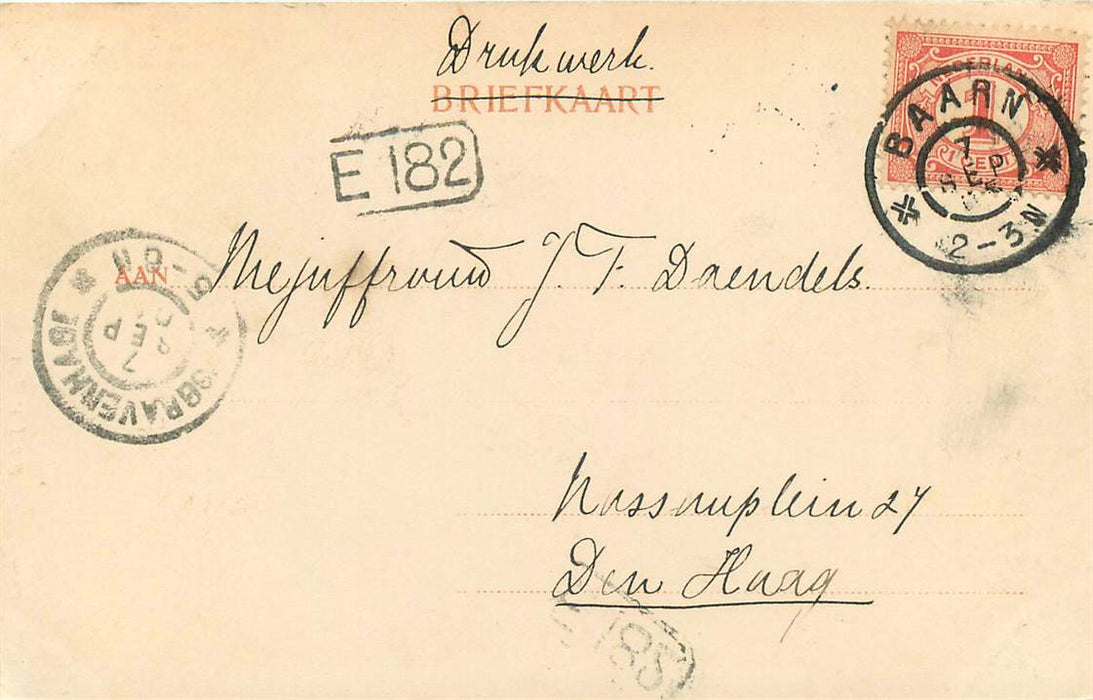 Drukwerk.
BRIEFKAART
NEDERLAND
1
1 CENT
BAARN
7
SEP
2-3N
E 182
AAN
Mejuffrouw J. F. Daendels.
'SGRAVENHAGE
7
SEP
Nassauplein 27
Den Haag
185